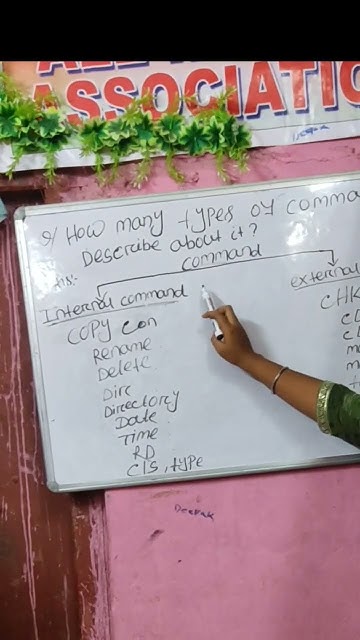 ASSOCIATIO
Deepak
Q/ How many types of comma
Describe about it?
Ans:-
command
Internal command
external
COPY con
Rename
Delete
Dirc
Direectorcy
Date
Time
RD
CIS, type
CHK
DEEPAK